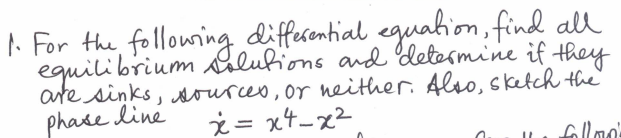 1. For the following differential equation, find all
equilibrium solutions and determine if they
are sinks, sources, or neither. Also, sketch the
phase line ẋ = x⁴ – x²